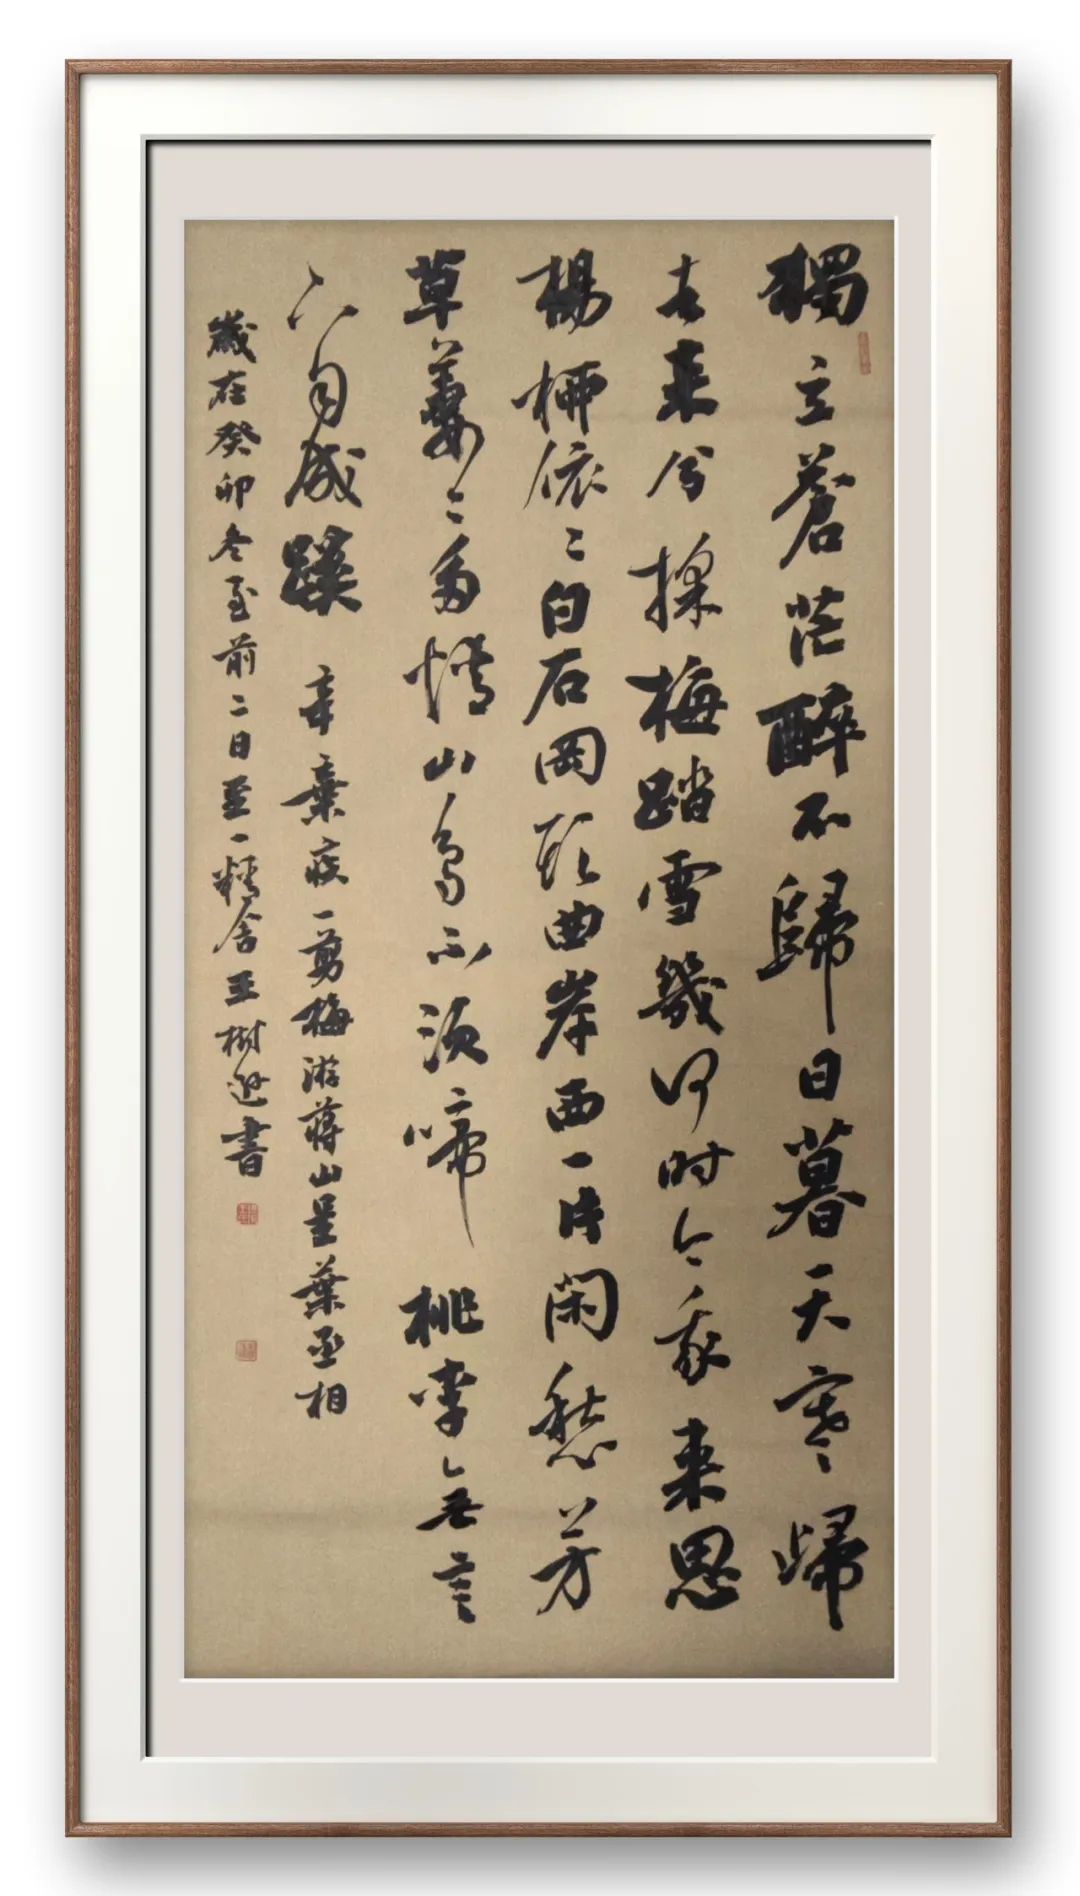 獨立蒼茫醉不歸日暮天寒歸
去來兮探梅踏雪幾何時今我來思
楊柳依〻白石岡頭曲岸西一片閑愁芳
草萋〻多情山鳥不須啼桃李無言
下自成蹊 辛棄疾一剪梅游蔣山呈葉丞相
歲在癸卯冬至前二日至一精舍王樹書